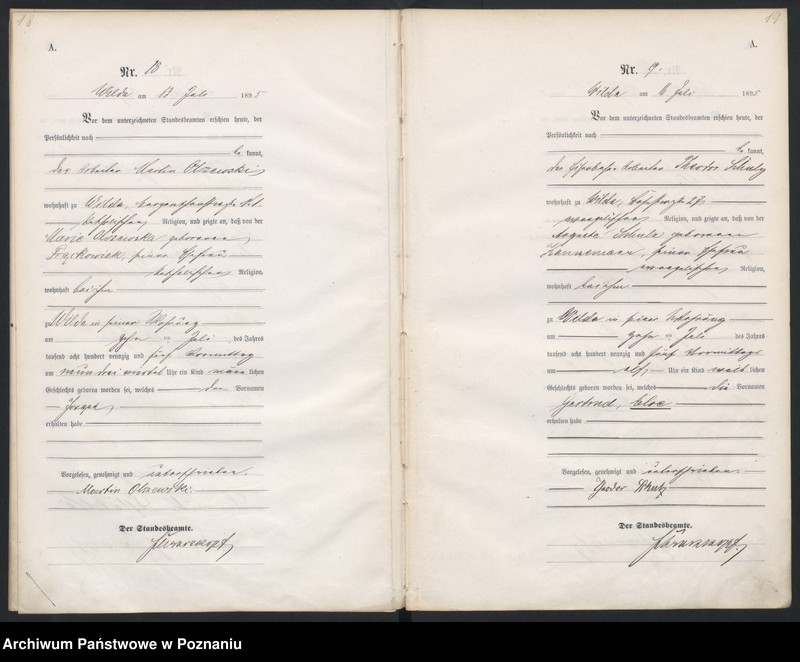 18
A.
Nr. 18
Wilda am 13 Juli 1895
Vor dem unterzeichneten Standesbeamten erschien heute, der
Persönlichkeit nach
be kannt,
der Arbeiter Martin Olszewski
wohnhaft zu Wilda,
katholischer Religion, und zeigte an, daß von der
Marie Olszewska geborenen
Frąckowiak, seiner Ehefrau
katholischer Religion,
wohnhaft bei ihm
zu Wilda in seiner Wohnung
am zehn ten Juli des Jahres
tausend acht hundert neunzig und fünf Vormittag
um neun drei viertel Uhr ein Kind männ lichen
Geschlechts geboren worden sei, welches den Vornamen
Joseph
erhalten habe
Vorgelesen, genehmigt und unterschrieben.
Martin Olszewski
Der Standesbeamte.
19
A.
Nr. 9.
Wilda am 16 Juli 1895
Vor dem unterzeichneten Standesbeamten erschien heute, der
Persönlichkeit nach
be kannt,
der Eisenbahn-Arbeiter Theodor Schulz
wohnhaft zu Wilda, 27
evangelischer Religion, und zeigte an, daß von der
Auguste Schulz geborenen
seiner Ehefrau
evangelischer Religion,
wohnhaft bei ihm
zu Wilda in seiner Wohnung
am zehn ten Juli des Jahres
tausend acht hundert neunzig und fünf Vormittags
um elf Uhr ein Kind weib lichen
Geschlechts geboren worden sei, welches die Vornamen
Gertrud, Else
erhalten habe
Vorgelesen, genehmigt und unterschrieben.
Theodor Schulz
Der Standesbeamte.
Archiwum Państwowe w Poznaniu